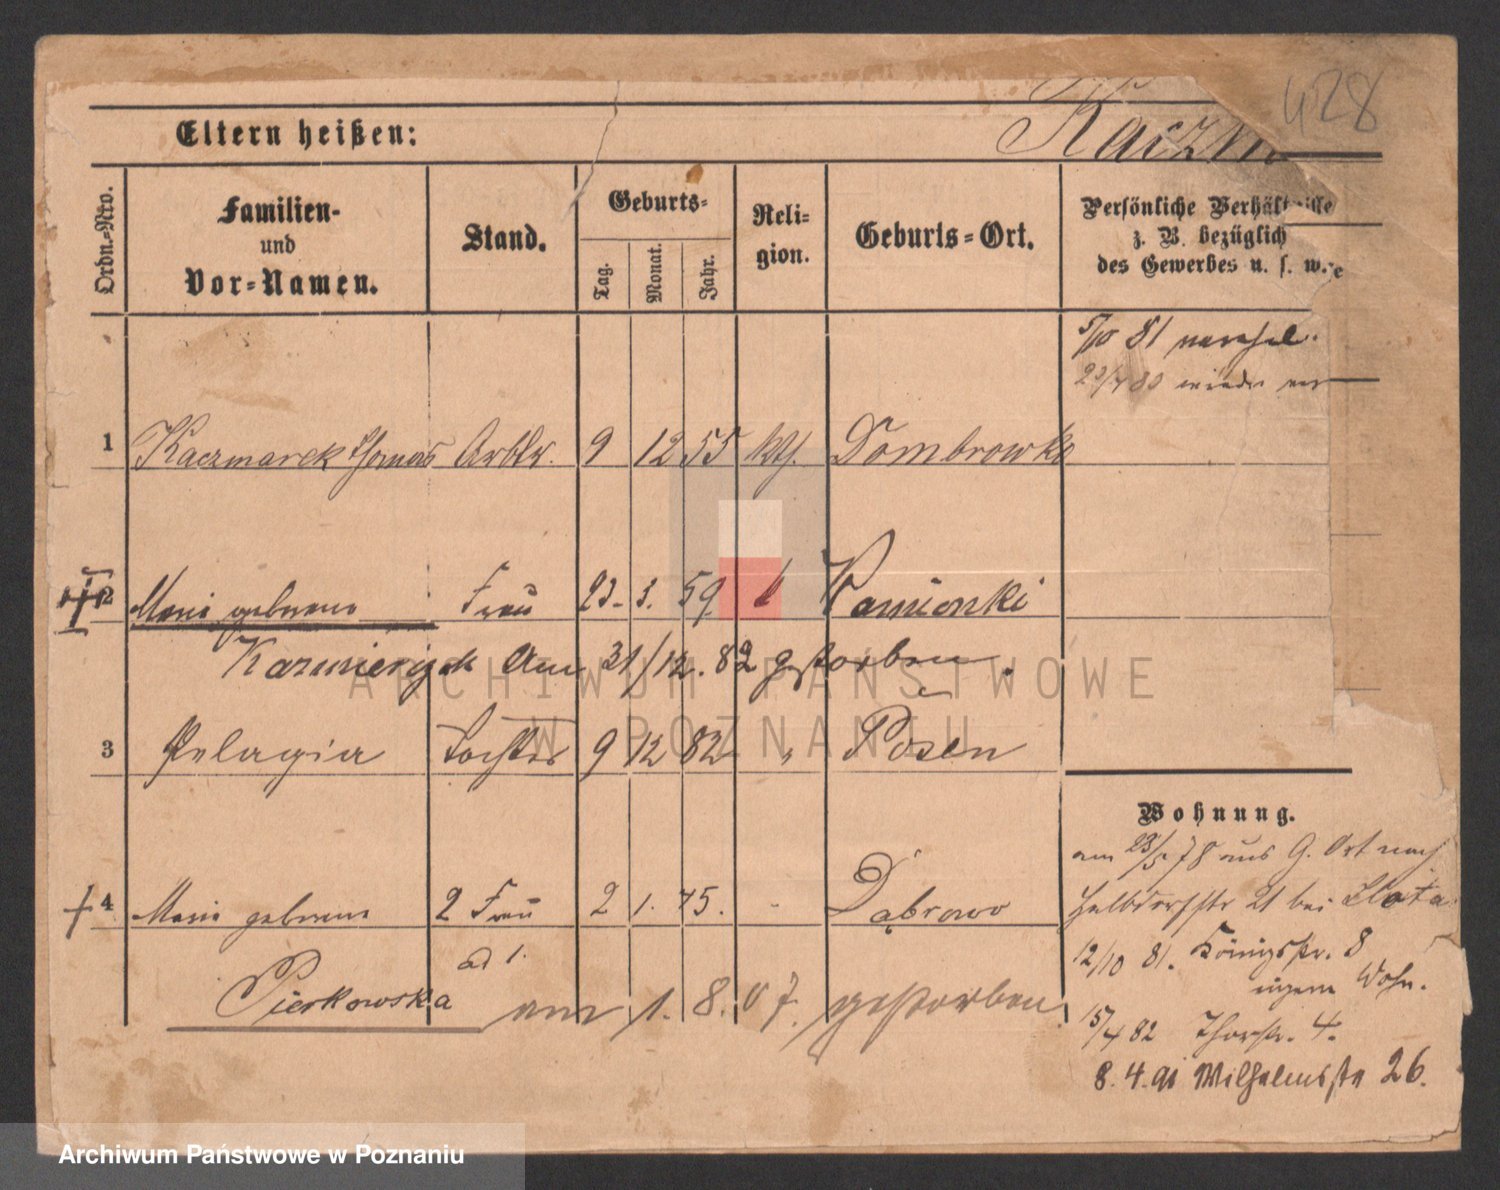 428
Eltern heißen: Kaczm
Ordn.-Nro.
Familien-
und
Vor-Namen.
Stand.
Geburts-
Tag.
Monat.
Jahr.
Reli-
gion.
Geburts-Ort.
Persönliche Verhältnisse
z. B. bezüglich
des Gewerbes u. s. w.
5/10 81 verehel.
1 Kaczmarek Thomas Arbtr. 9 12 55 kth. Dombrowka
2 Marie geborene Frau 23. 3. 59 k Kamionki
Kazmierczak Am 31/12. 82 gestorben.
3 Pelagia Tochter 9 12 82 " Posen
4 Marie geborene 2 Frau 2 1. 75. - Dąbrowo
ad 1.
Pierkowska am 1. 8. 07. gestorben
Wohnung.
am 23/5 78 aus G. Ort nach
Halbdorfstr 21 bei Zlota
12/10 81. Königsstr. 8
eigene Wohn.
15/4 82 Thorstr. 4.
8. 4. 91 Wilhelmstr 26.
ARCHIWUM PAŃSTWOWE
W POZNANIU
Archiwum Państwowe w Poznaniu